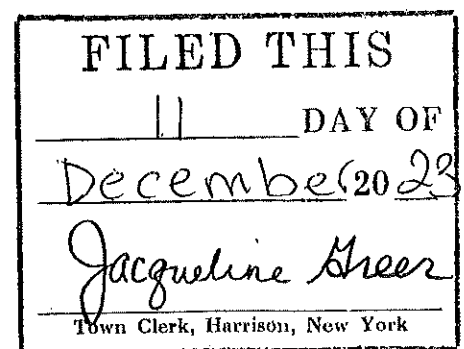 FILED THIS
11 DAY OF
December 20 23
Jacqueline Greer
Town Clerk, Harrison, New York